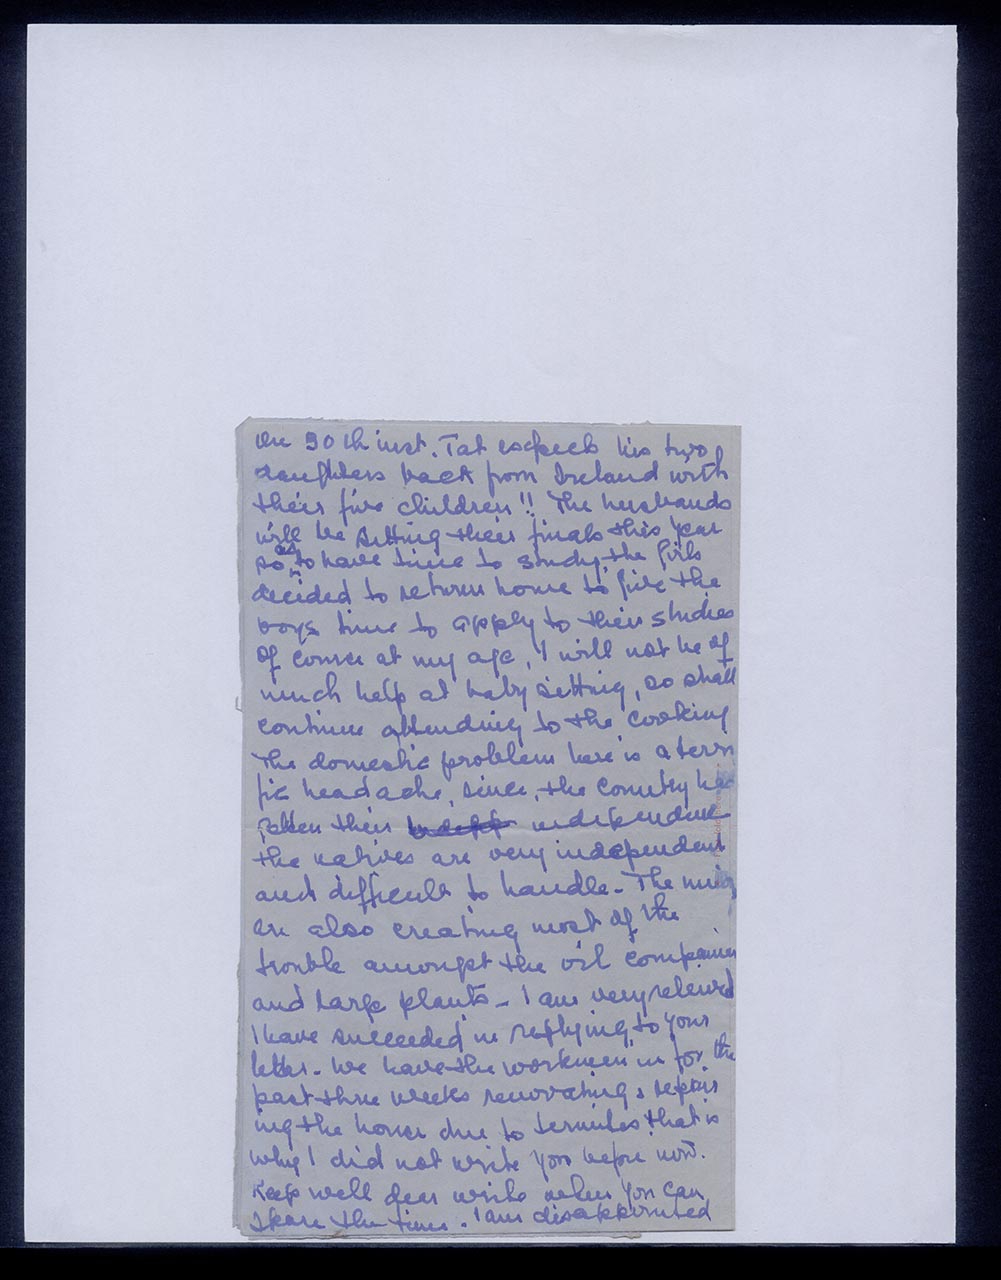 on 30th inst. Tat expects his two
daughters back from Ireland with
their five children!! The husbands
will be sitting their finals this year
so as to have time to study, the girls
decided to return home to give the
boys time to apply to their studies
Of course at my age, I will not be of
much help at baby sitting, so shall
continue attending to the cooking
The domestic problem here is a terri
fic headache, since, the country has
gotten their independence
the natives are very independent
and difficult to handle - The
are also creating most of the
trouble amongst the oil companies
and large plants - I am very relieved
I have succeeded in replying to your
letter - We have the workmen in for the
past three weeks renovating & repair
ing the house due to termites that is
why I did not write you before now.
Keep well dear write when you can
spare the time. I am disappointed